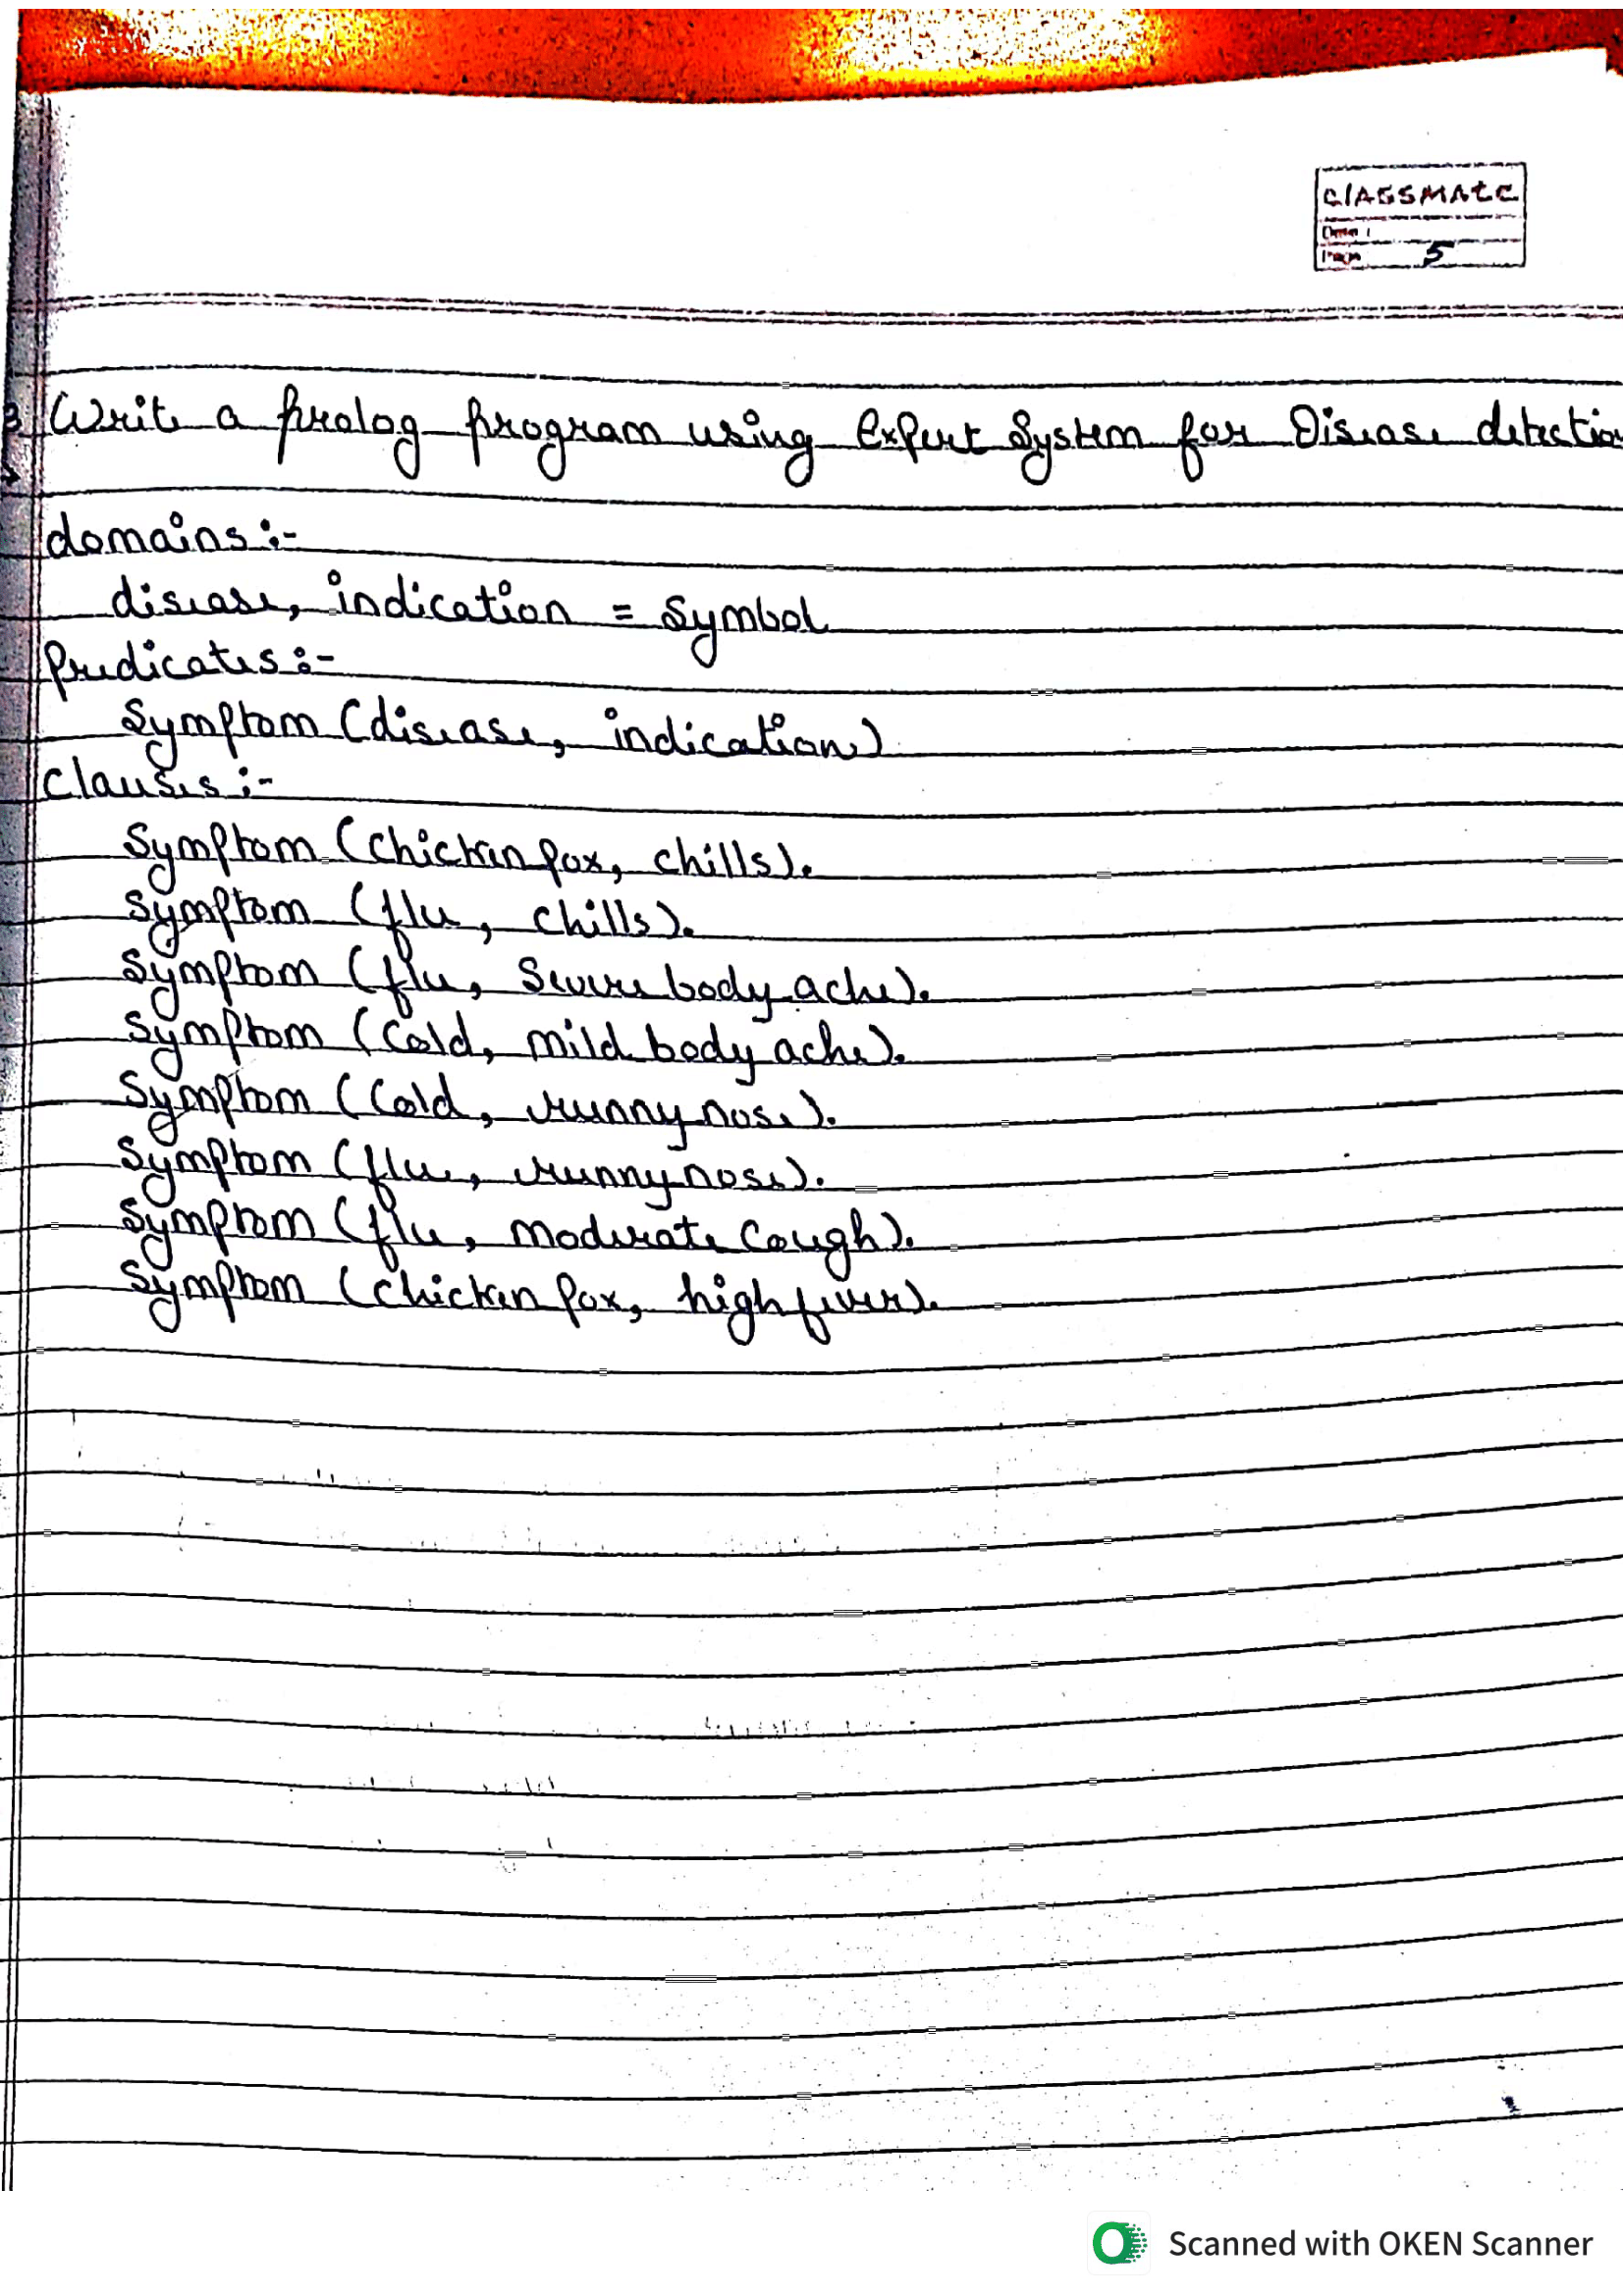 classmate
Date :
Page 5
3 Write a prolog program using Expert System for Disease detection
→
domains :-
disease, indication = Symbol
Predicates :-
Symptom (disease, indication)
Clauses :-
Symptom (Chicken pox, chills).
Symptom (flu, chills).
Symptom (flu, Severe body ache).
Symptom (Cold, mild body ache).
Symptom (Cold, runny nose).
Symptom (flu, runny nose).
Symptom (flu, moderate cough).
Symptom (chicken pox, high fever).
Scanned with OKEN Scanner